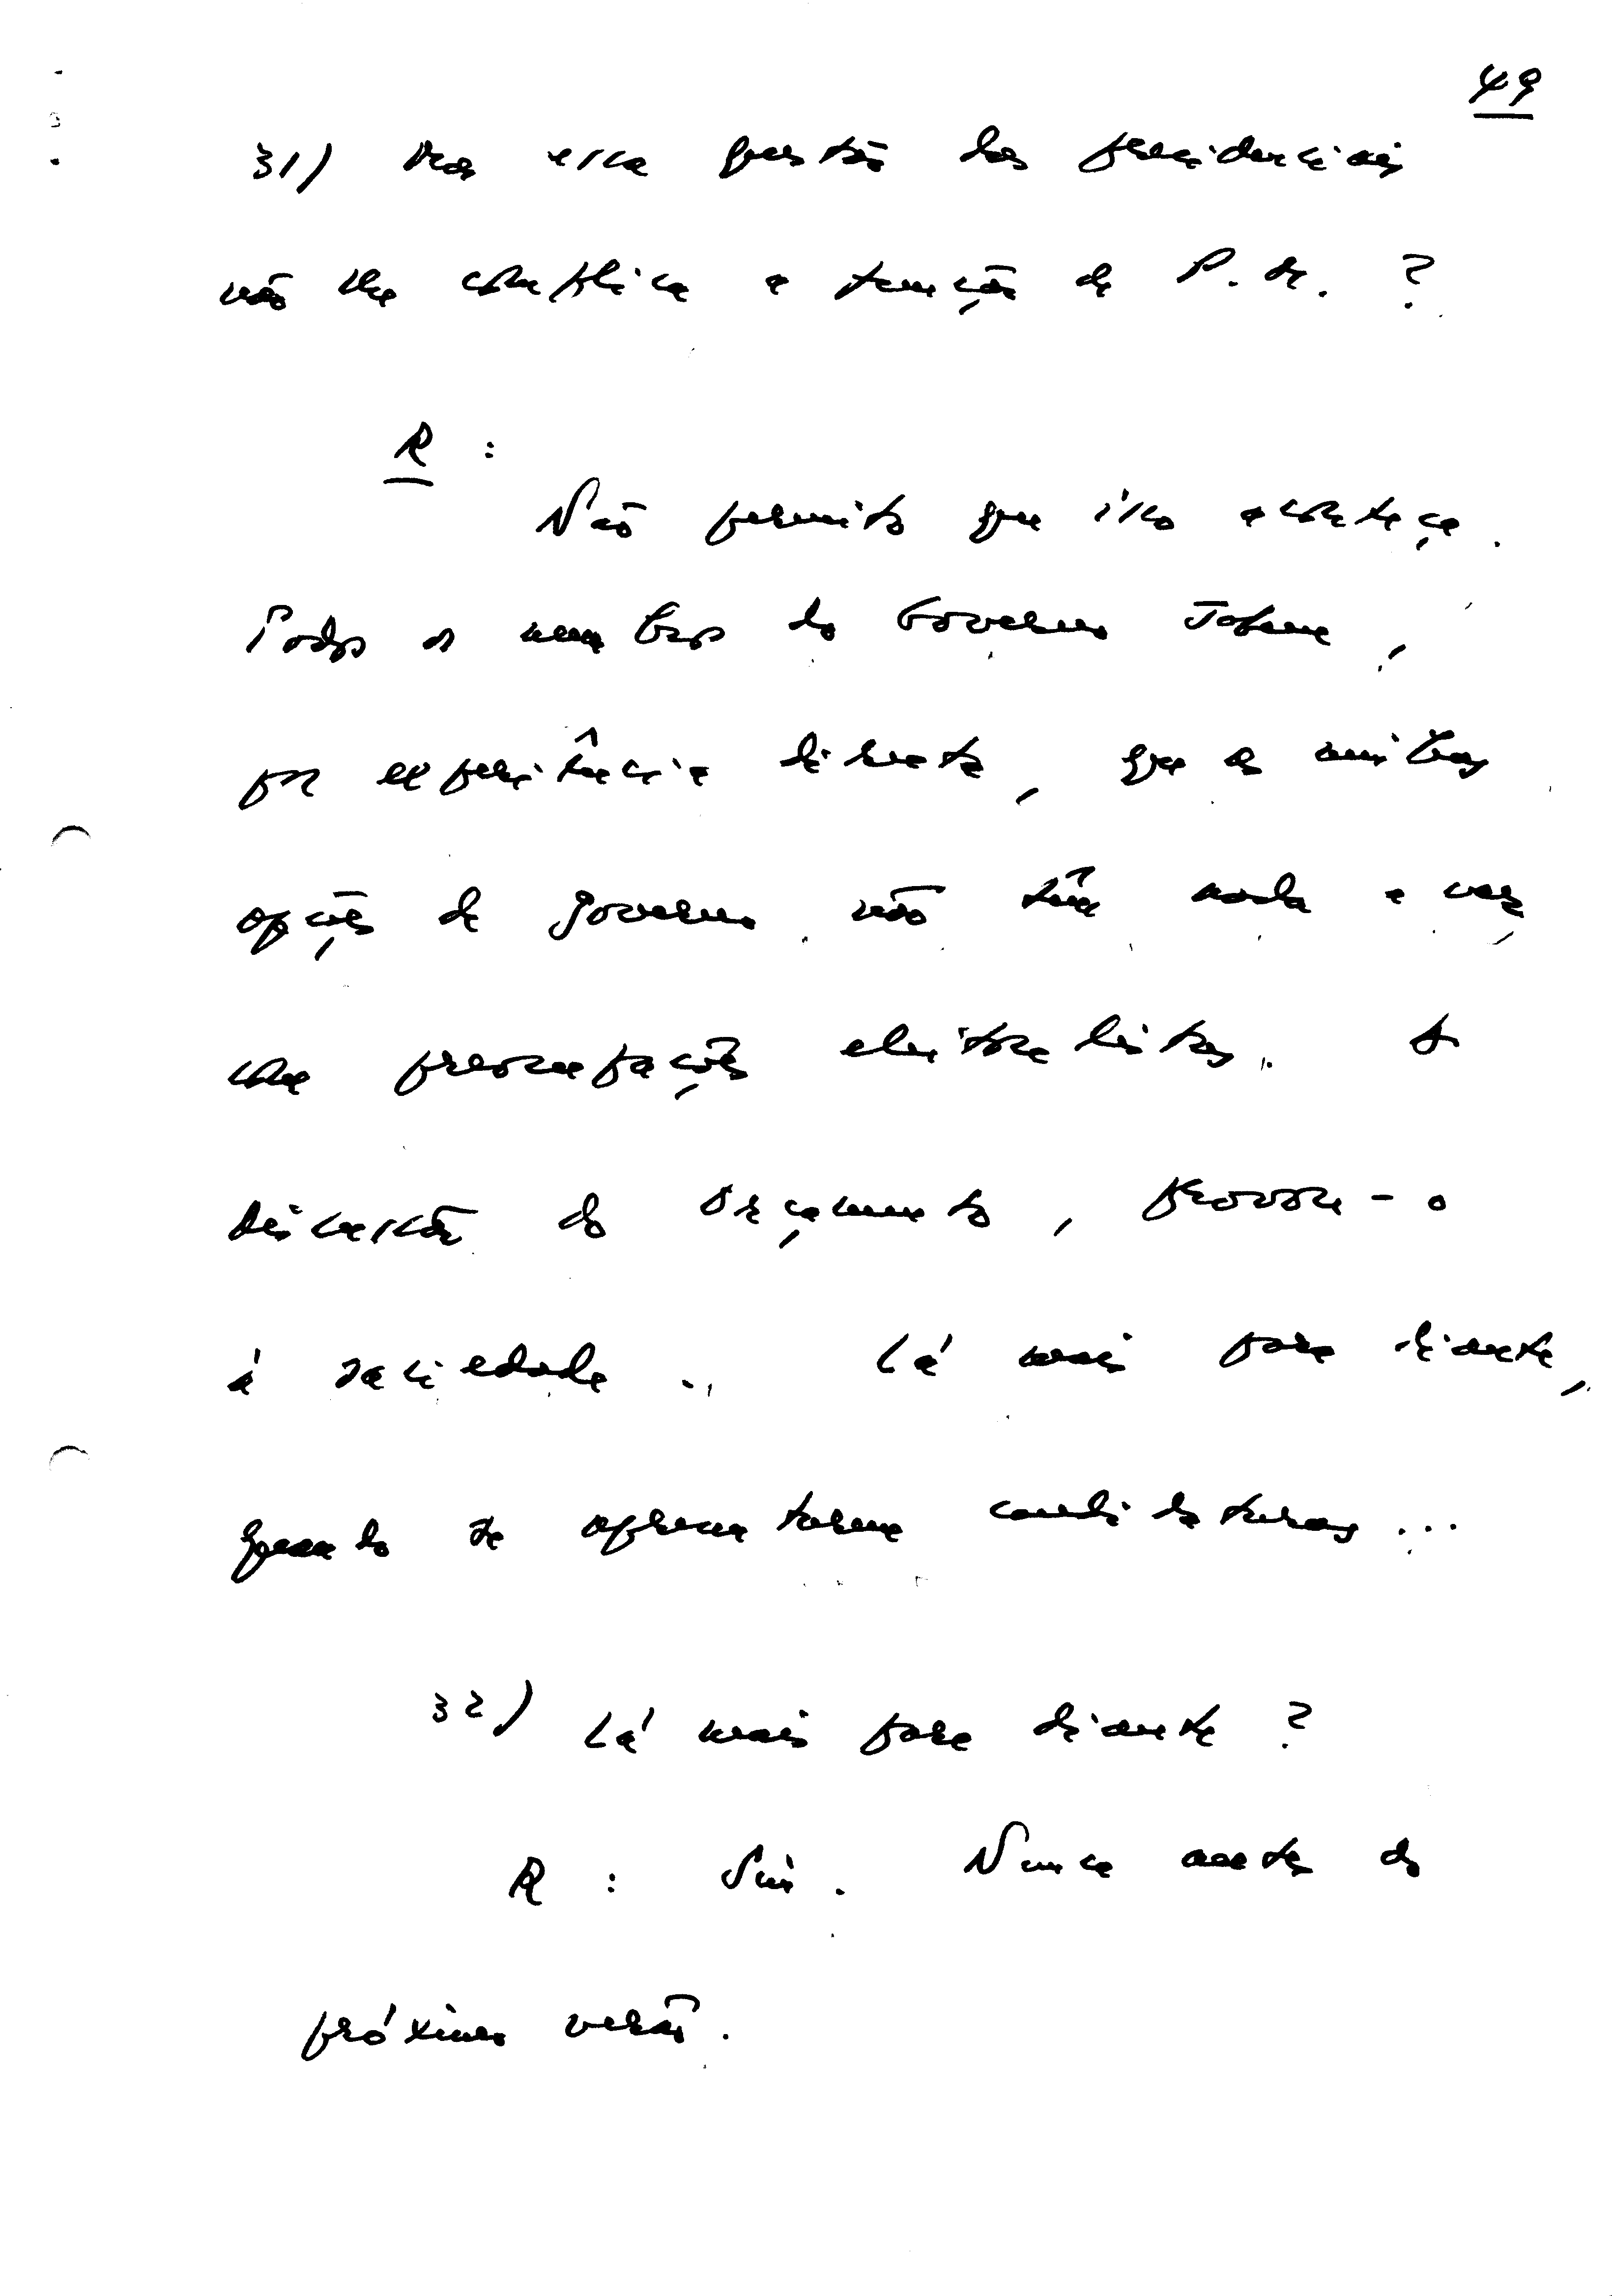 49
31) Mas essa questão das presidenciais
não lhe complica a função de P. M. ?
R :
Não permito que isso aconteça.
Todos os membros do Governo sabem,
por experiência directa, que as minhas
opções de governo não têm nada a ver
com preocupações eleitoralistas. A
discussão do Orçamento, provou-o
à saciedade. Lá mais para diante,
quando se apresentarem candidaturas...
32) Lá mais para diante ?
R : Sim. Nunca antes do
próximo verão.